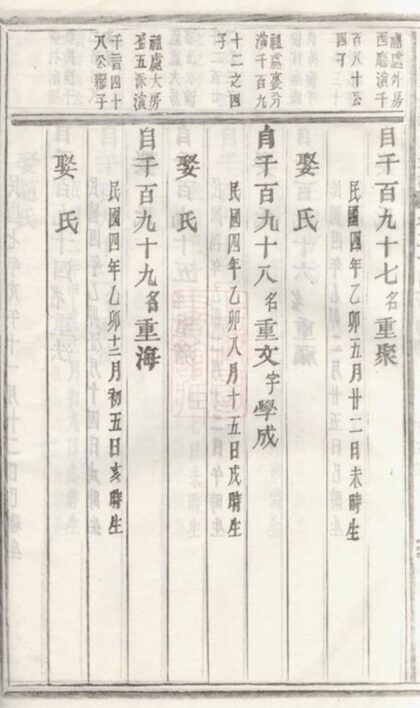 祖處外房
西廳演千
百八十公
四丁
自千百九十七名重聚
民國四年乙卯五月廿二日未時生
娶氏
祖處婁分
演千百九
十二之四
子
自千百九十八名重文字學成
民國四年乙卯八月十五日戌時生
娶氏
祖處大房
至五派演
千百四十
八公稱子
自千百九十九名重海
民國四年乙卯十二月初五日亥時生
娶氏